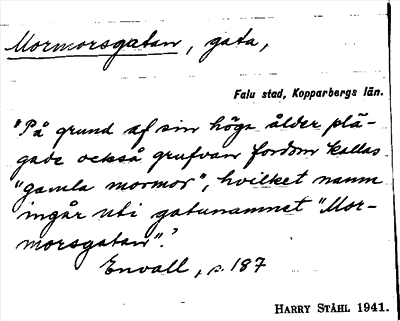 Mormorsgatan, gata,
Falu stad, Kopparbergs län.
"På grund af sin höga ålder plä-
gade också grufvan fordom kallas
"gamla mormor", hvilket namn
ingår uti gatunamnet "Mor-
morsgatan".
Envall, s. 187
HARRY STÅHL 1941.